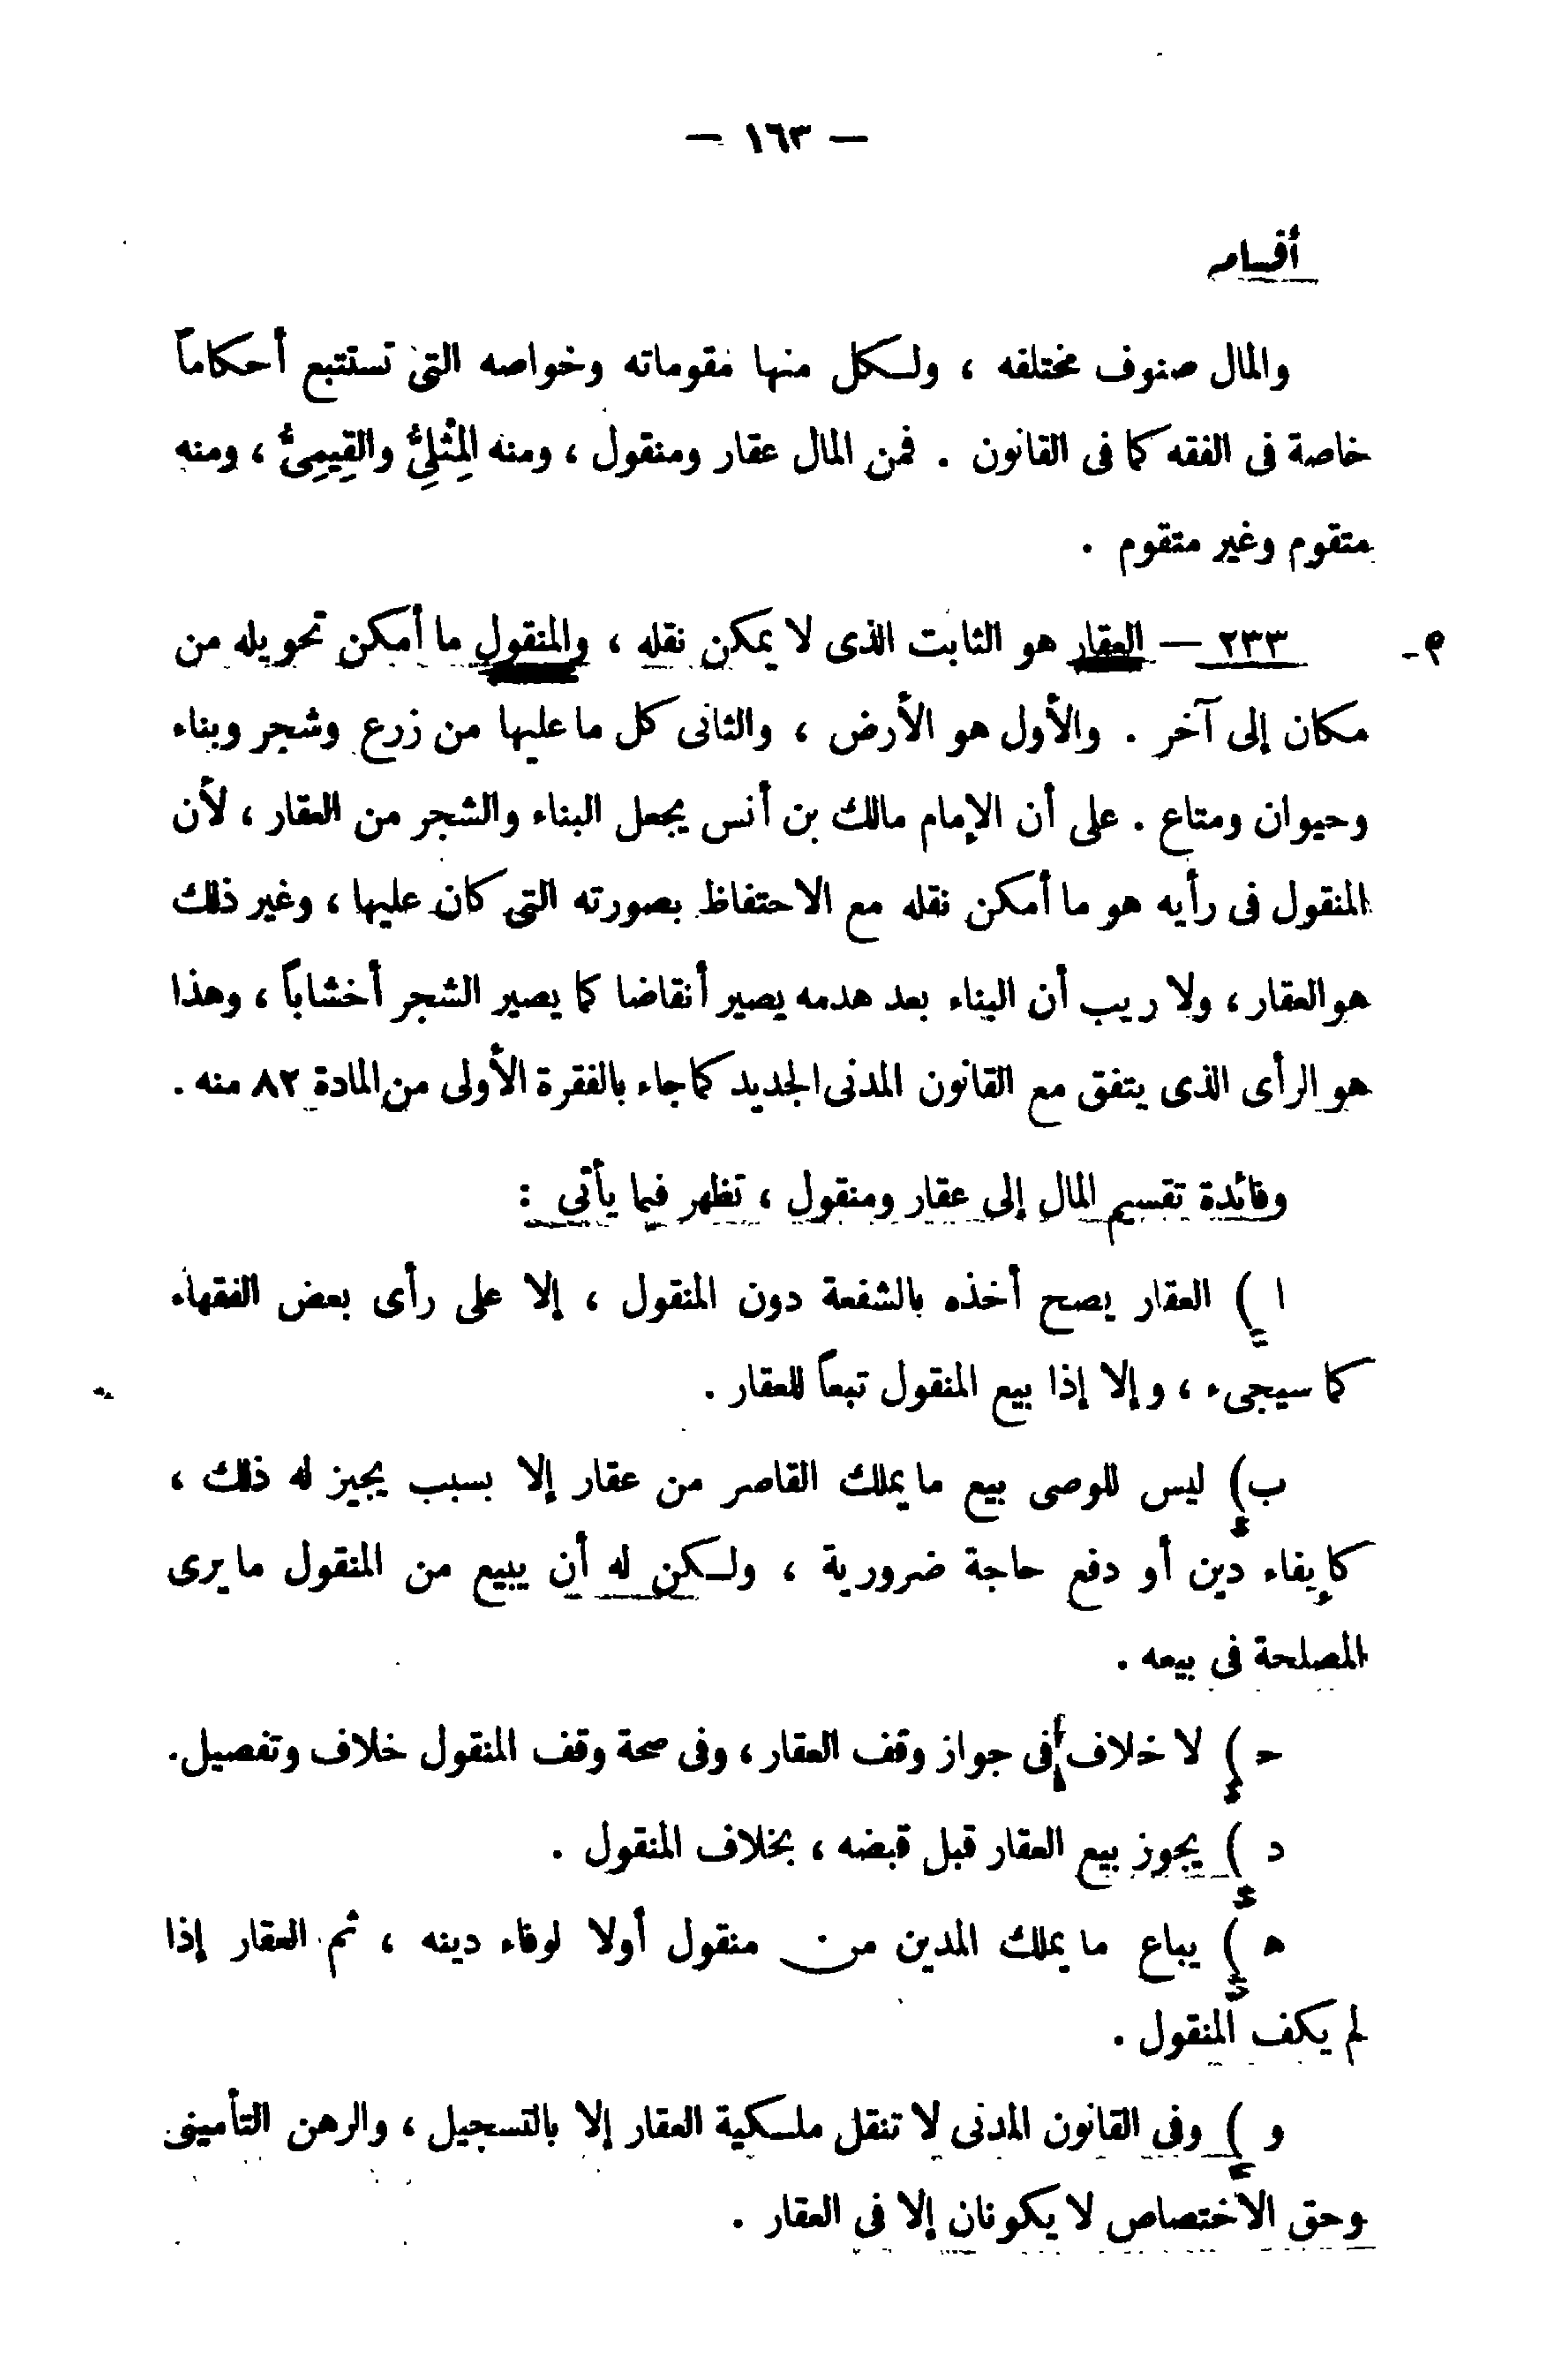 — ١٦٣ —
أقسامه
والمال صنوف مختلفه ، ولكل منها مقوماته وخواصه التى تستتبع أحكاماً
خاصة فى الفقه كما فى القانون . فمن المال عقار ومنقول ، ومنه المِثْلِىُّ والقِيمِىُّ ، ومنه
متقوم وغير متقوم .
٢٣٣ — العقار هو الثابت الذى لا يمكن نقله ، والمنقول ما أمكن تحويله من
مكان إلى آخر . والأول هو الأرض ، والثانى كل ما عليها من زرع وشجر وبناء
وحيوان ومتاع . على أن الإمام مالك بن أنس يجعل البناء والشجر من العقار ، لأن
المنقول فى رأيه هو ما أمكن نقله مع الاحتفاظ بصورته التى كان عليها ، وغير ذلك
هو العقار ، ولا ريب أن البناء بعد هدمه يصير أنقاضا كما يصير الشجر أخشاباً ، وهذا
هو الرأى الذى يتفق مع القانون المدنى الجديد كما جاء بالفقرة الأولى من المادة ٨٢ منه .
وفائدة تقسيم المال إلى عقار ومنقول ، تظهر فيما يأتى :
ا ) العقار يصح أخذه بالشفعة دون المنقول ، إلا على رأى بعض الفقهاء
كما سيجىء ، وإلا إذا بيع المنقول تبعاً للعقار .
ب) ليس للوصى بيع ما يملك القاصر من عقار إلا بسبب يجيز له ذلك ،
كإيفاء دين أو دفع حاجة ضرورية ، ولكن له أن يبيع من المنقول ما يرى
المصلحة فى بيعه .
ح ) لا خلاف فى جواز وقف العقار ، وفى صحة وقف المنقول خلاف وتفصيل .
د ) يجوز بيع العقار قبل قبضه ، بخلاف المنقول .
ه ) يباع ما يملك المدين من منقول أولا لوفاء دينه ، ثم العقار إذا
لم يكف المنقول .
و ) وفى القانون المدنى لا تنقل ملكية العقار إلا بالتسجيل ، والرهن التأمينى
وحق الاختصاص لا يكونان إلا فى العقار .